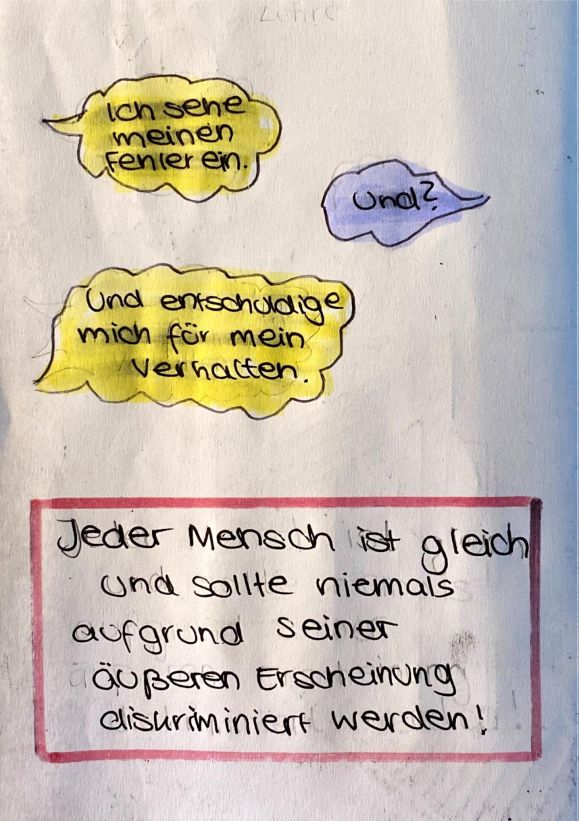 Lehre
Ich sehe
meinen
Fehler ein.
Und?
Und entschuldige
mich für mein
Verhalten.
Jeder Mensch ist gleich
und sollte niemals
aufgrund seiner
äußeren Erscheinung
diskriminiert werden!